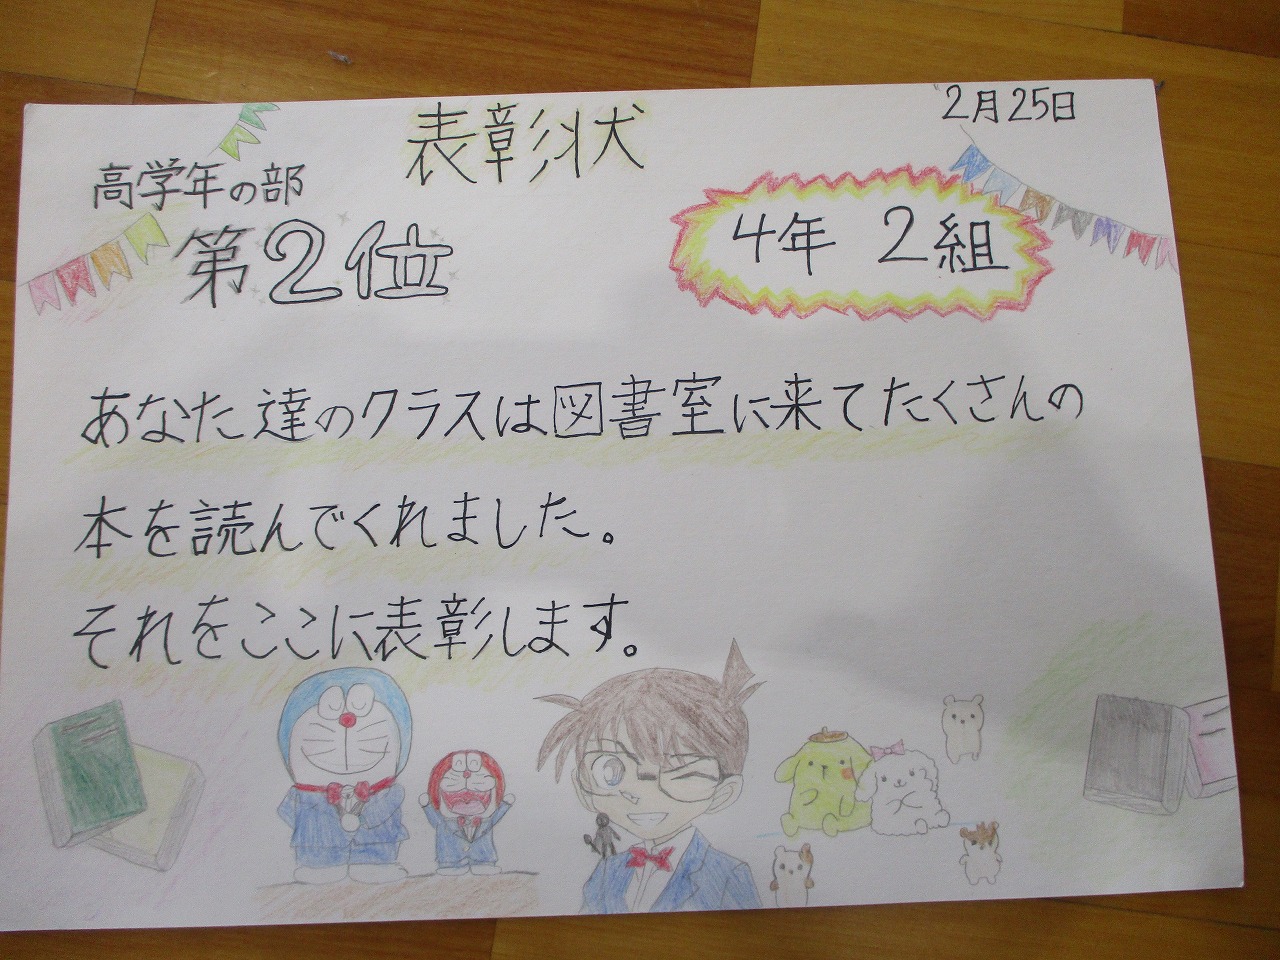 表彰状
2月25日
高学年の部
第2位
4年 2組
あなた達のクラスは図書室に来てたくさんの
本を読んでくれました。
それをここに表彰します。